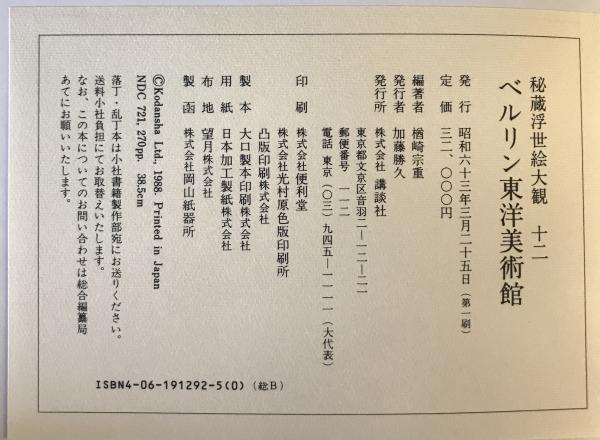 秘蔵浮世絵大観　十二
ベルリン東洋美術館
発　行　昭和六十三年三月二十五日（第一刷）
定　価　三二、〇〇〇円
編著者　楢崎宗重
発行者　加藤勝久
発行所　株式会社 講談社
東京都文京区音羽二―一二―二一
郵便番号　一一二
電話　東京（〇三）九四五―一一一一（大代表）
印　刷　株式会社便利堂
株式会社光村原色版印刷所
凸版印刷株式会社
製　本　大口製本印刷株式会社
用　紙　日本加工製紙株式会社
布　地　望月株式会社
製　函　株式会社岡山紙器所
©Kodansha Ltd., 1988. Printed in Japan
NDC 721, 270pp. 38.5cm
落丁・乱丁本は小社書籍製作部宛にお送りください。
送料小社負担にてお取替えいたします。
なお、この本についてのお問い合わせは総合編纂局
あてにお願いいたします。
ISBN4-06-191292-5(0)（総B）